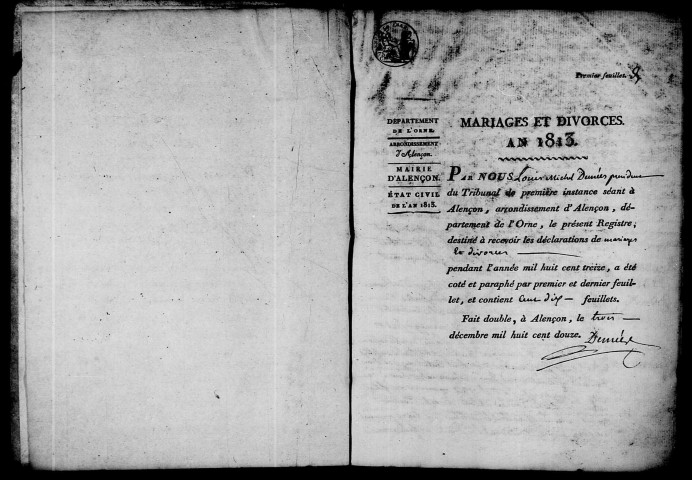 Premier feuillet.
DÉPARTEMENT
DE L'ORNE.
ARRONDISSEMENT
d'Alençon.
MAIRIE
D'ALENÇON.
ÉTAT CIVIL
DE L'AN 1813.
MARIAGES ET DIVORCES.
AN 1813.
PAR NOUS Louis Michel Demées president
du Tribunal de première instance séant à
Alençon, arrondissement d'Alençon, dé-
partement de l'Orne, le présent Registre,
destiné à recevoir les déclarations de mariages
et divorces
pendant l'année mil huit cent treize, a été
coté et paraphé par premier et dernier feuil-
let, et contient cent dix feuillets.
Fait double, à Alençon, le trois
décembre mil huit cent douze. Demées